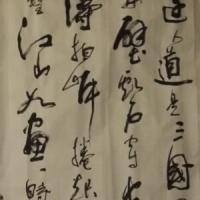 道是三國
壁亂石穿
濤拍岸捲起
江山如畫一時